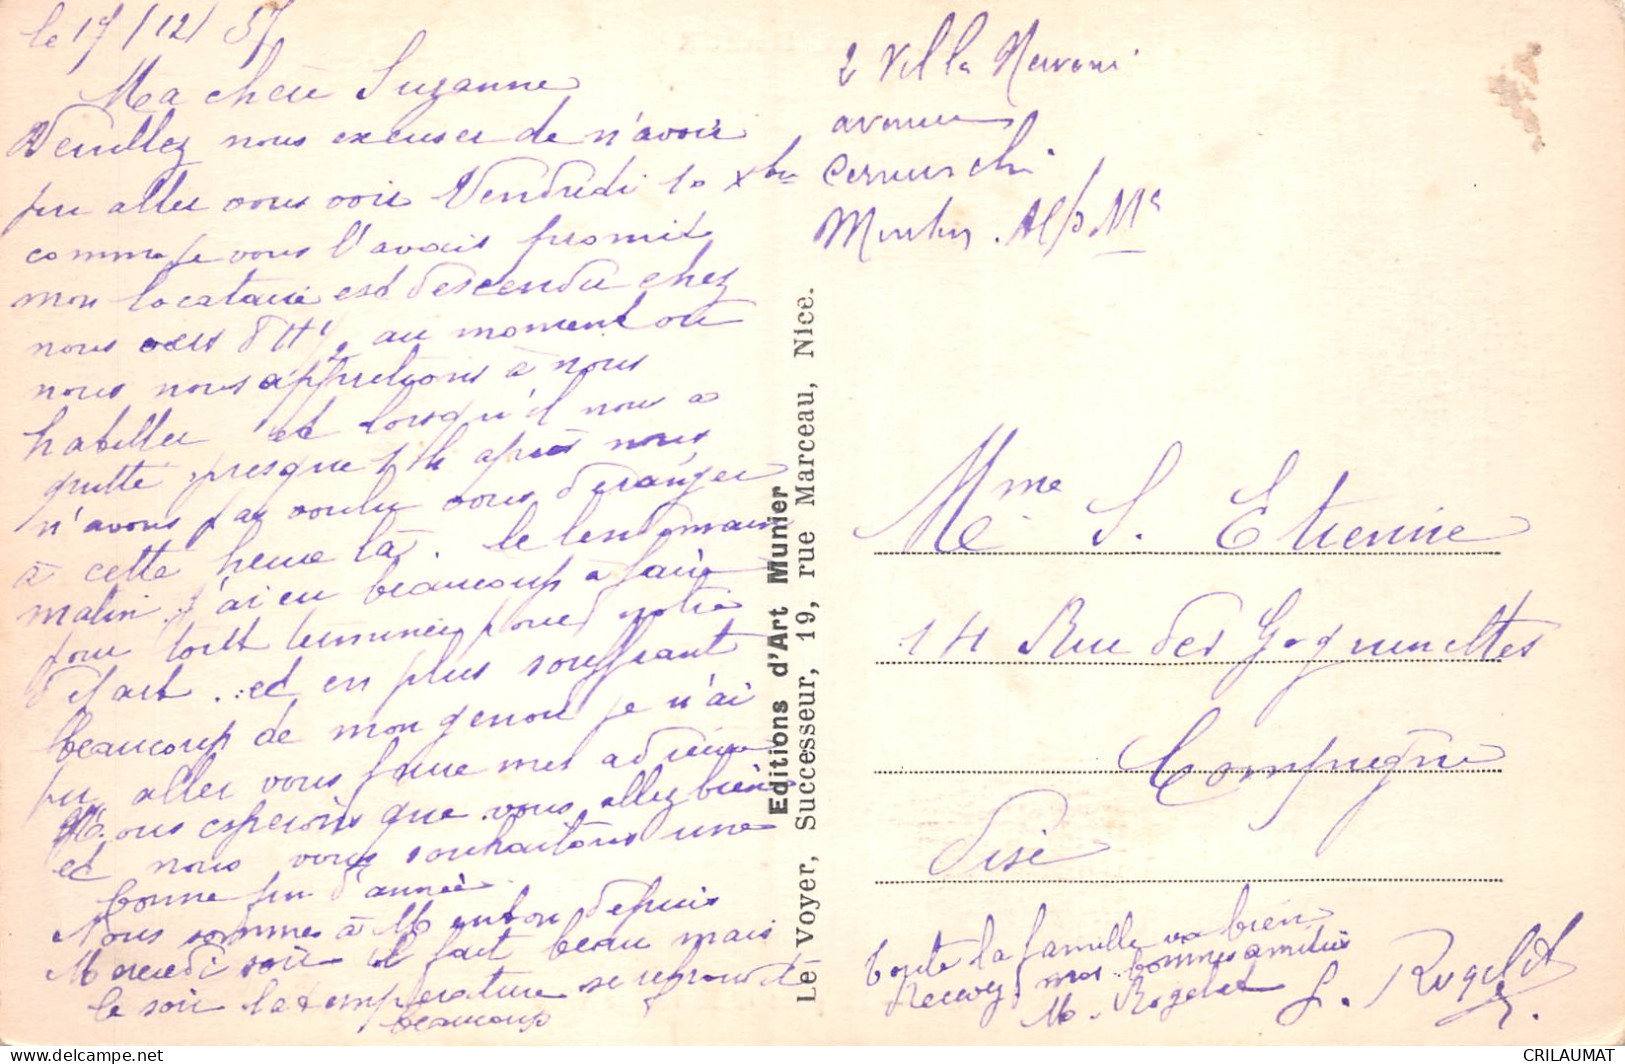 le 17/12/37
Ma chère Suzanne
Veuillez nous excuser de n'avoir
pu aller vous voir Vendredi 10 Xbre
comme je vous l'avais promis
mon locataire est descendu chez
nous au moment où
nous nous apprêtions à nous
habiller et lorsqu'il nous a
quitté presque 1 h après nous
n'avons pas voulu vous déranger
à cette heure là. le lendemain
matin j'ai eu beaucoup à faire
pour tout terminer pour notre
départ. et en plus souffrant
beaucoup de mon genou je n'ai
pu aller vous faire mes adieux
Nous esperons que vous allez bien
et nous vous souhaitons une
bonne fin d'année
Nous sommes à Menton depuis
Mercredi soir il fait beau mais
le soir la temperature se refroidit
beaucoup
2 Villa
avenue
Cernuschi
Menton. Alp. Mes
Editions d'Art Munier
Le Voyer, Successeur, 19, rue Marceau, Nice.
Mme S. Etienne
14 Rue des
Compiègne
Oise
toute la famille va bien
Recevez mes bonnes amitiés
M. Rogelet L. Rogelet
CRILAUMAT